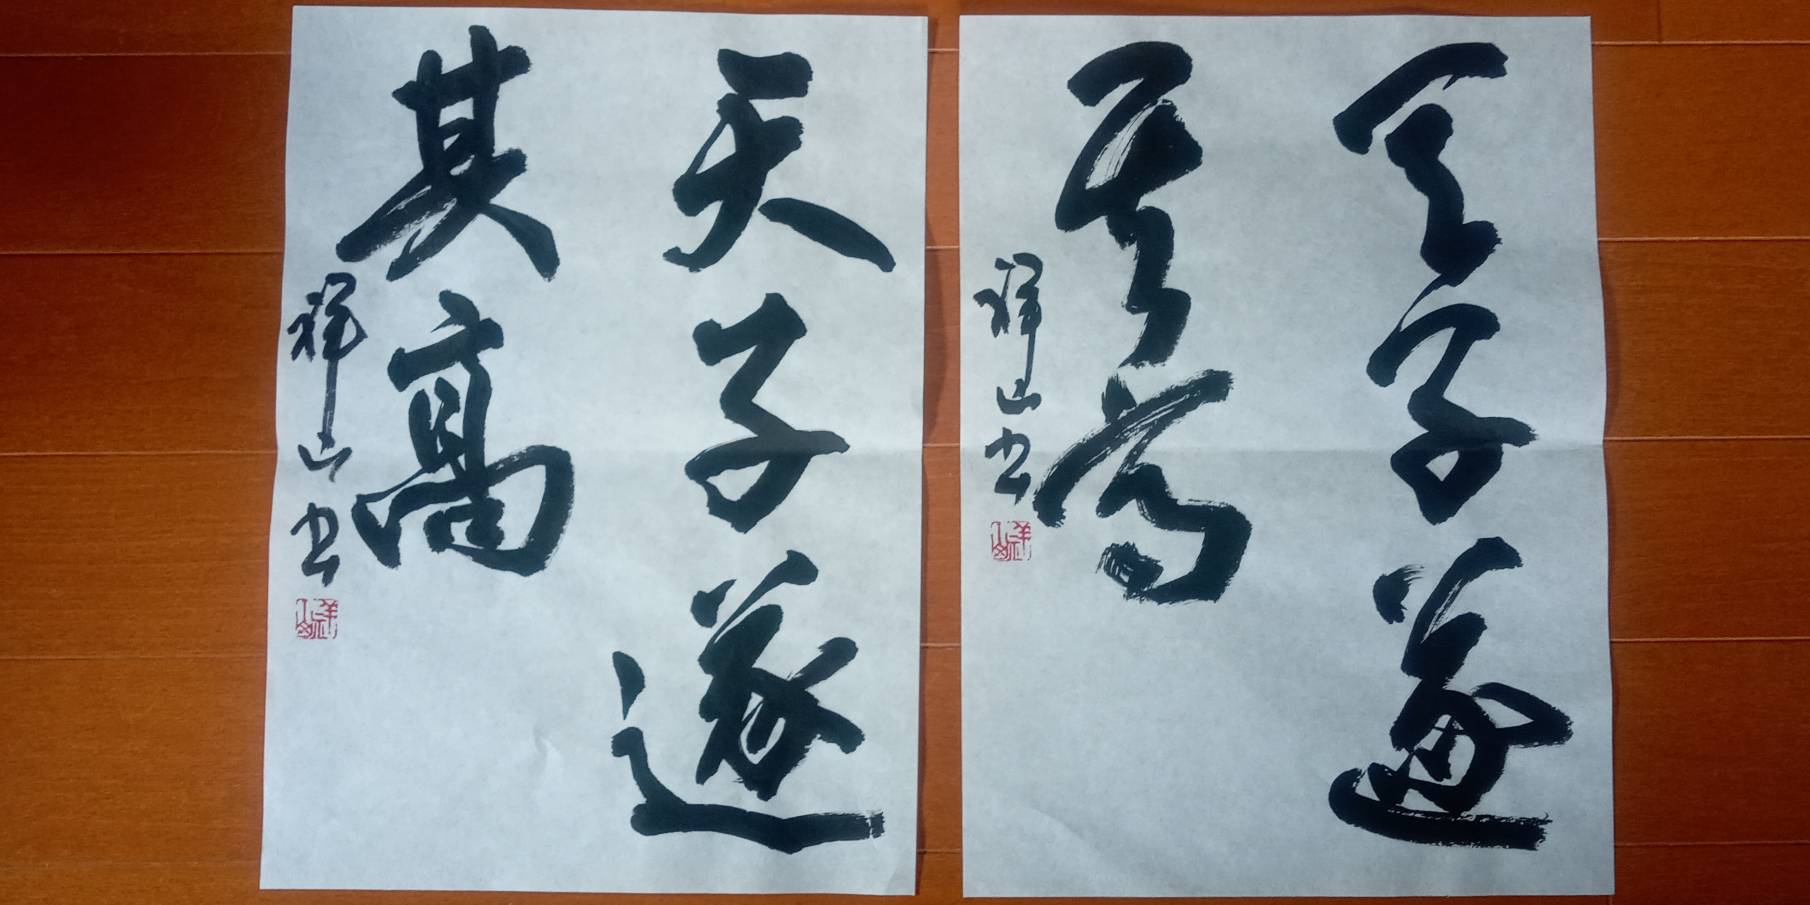 天子遂
其高
祥山书
天子遂
其高
祥山书